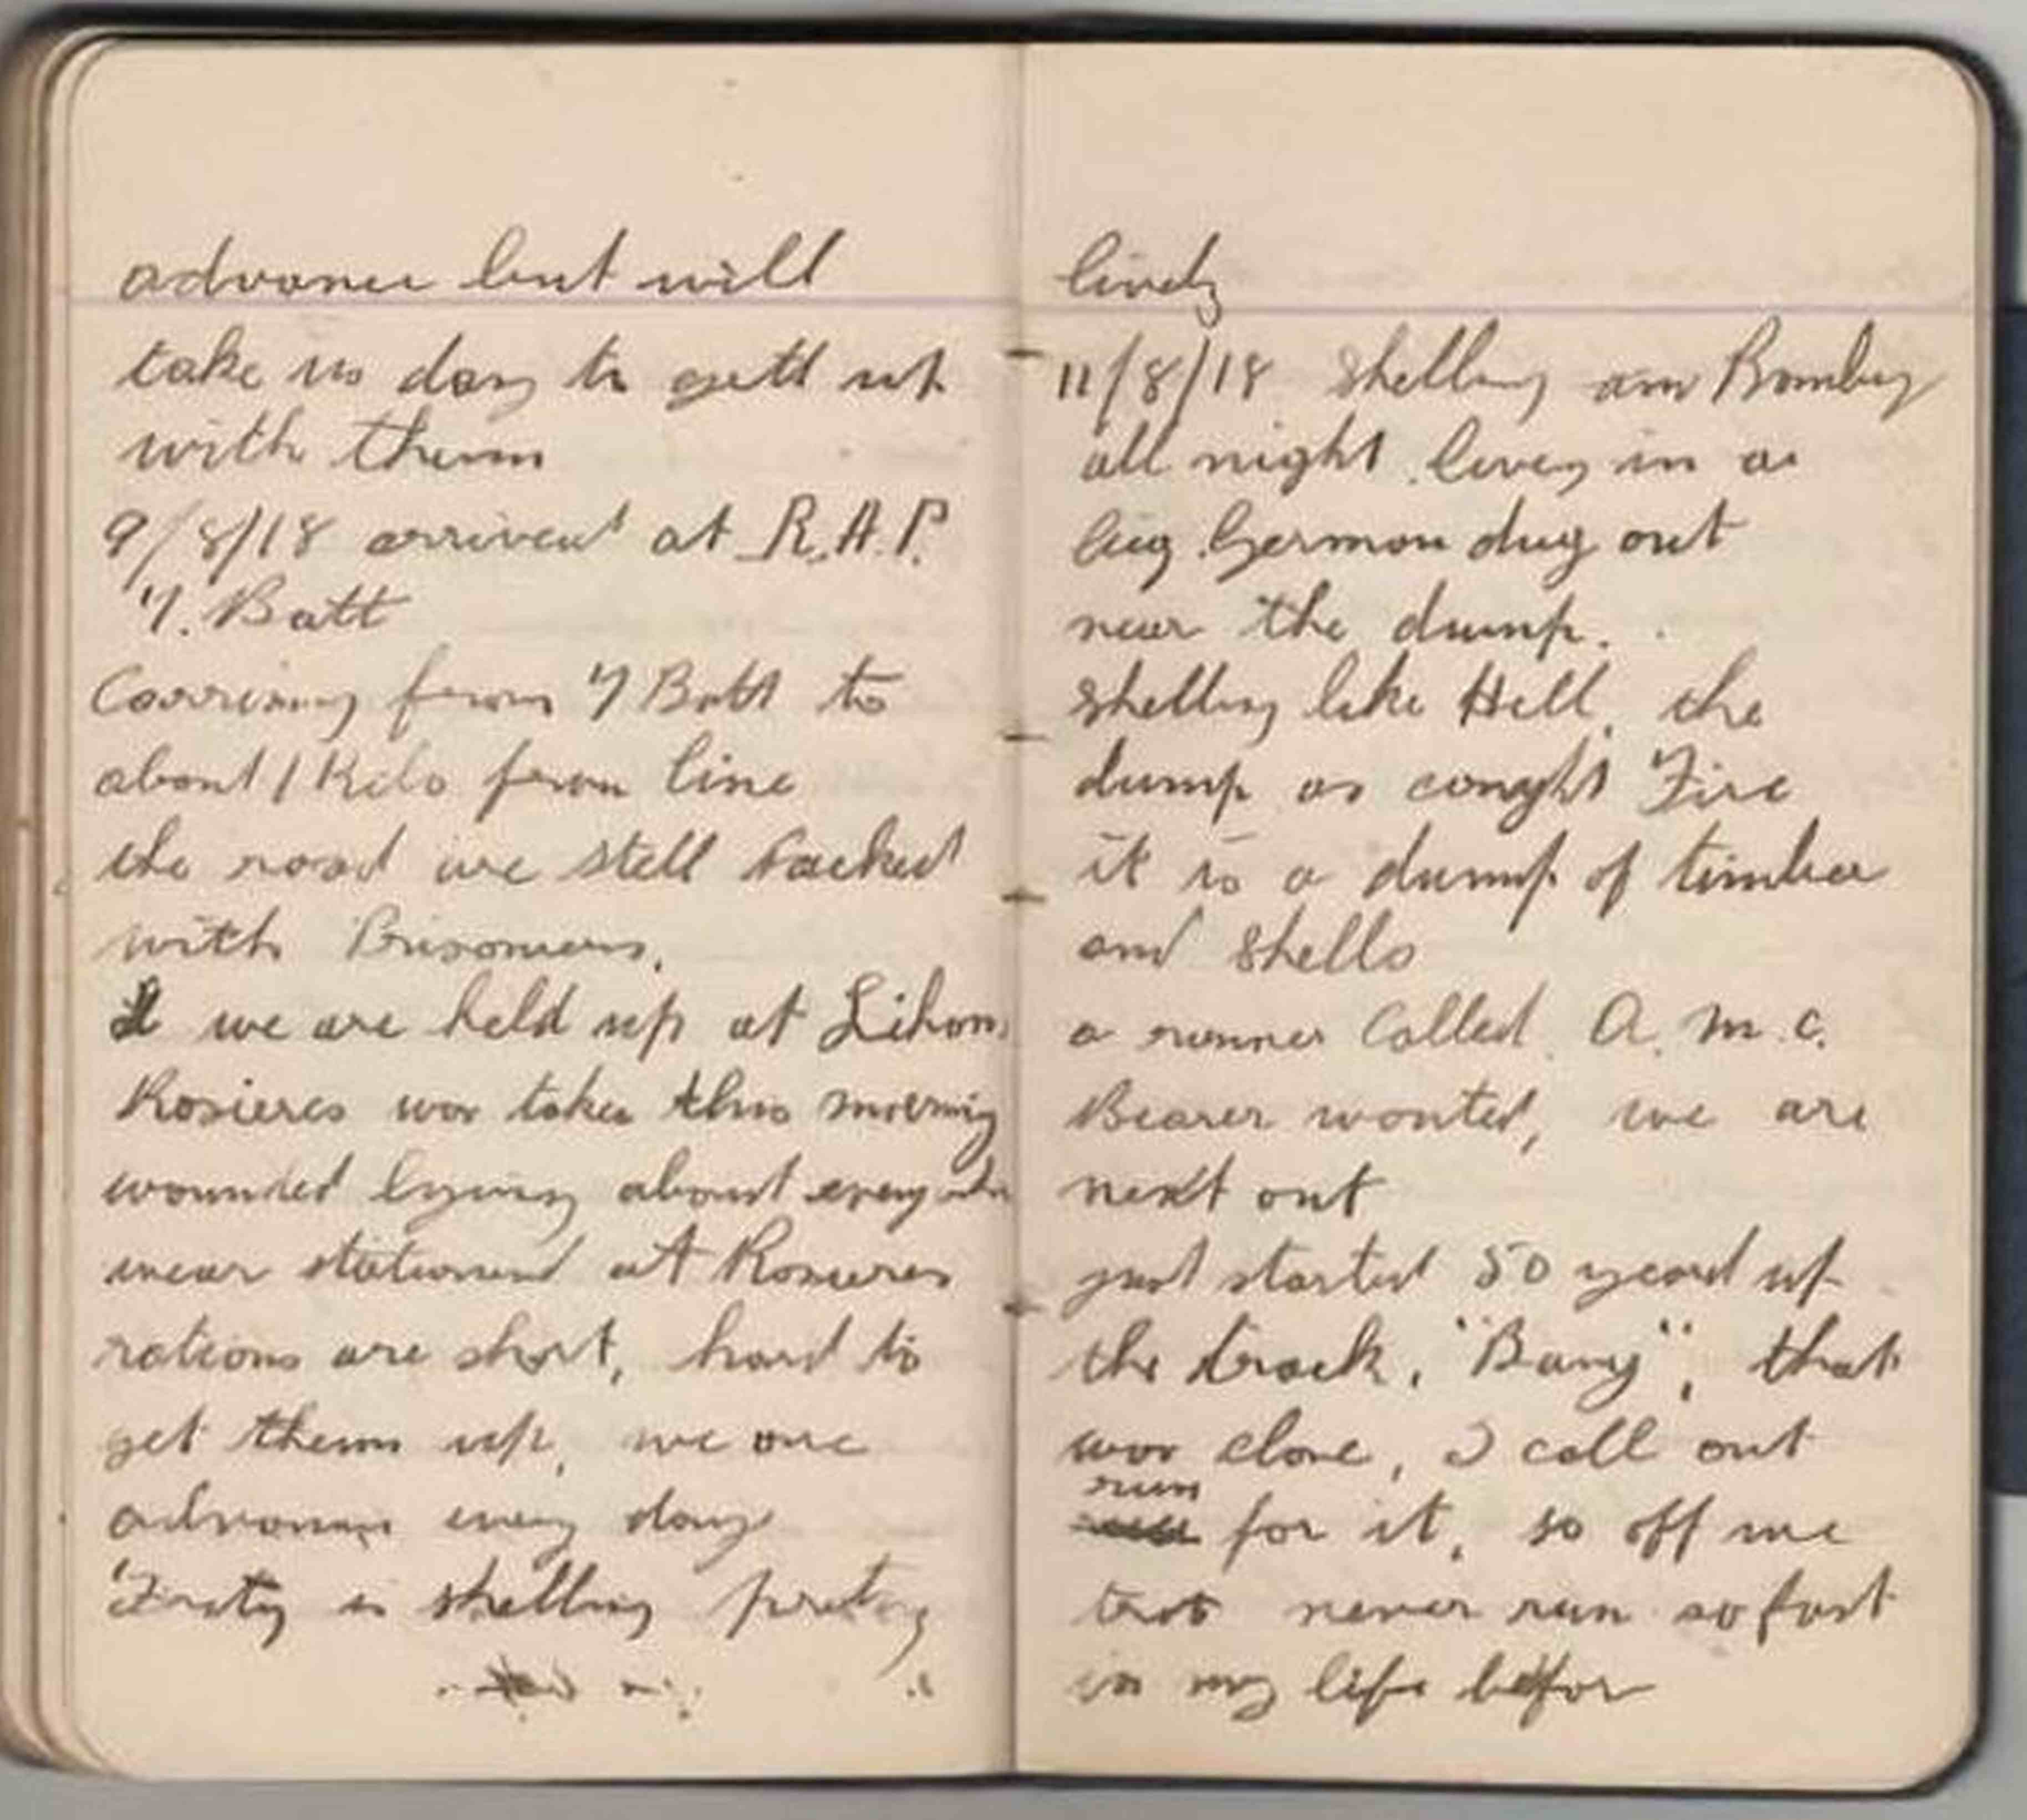 advance but will
take us days to gett up
with themm
9/8/18 arrived at R.A.P.
7. Batt
Carrining from 7 Batt to
about 1 Kilo from line
the road are still packed
with Prisoners.
we are held up at Lihons
Rosieres was taken this morning
wounded lying about every
wear stationed at Rosieres
rations are short, hard to
get themm up, we are
advancing every day
Fritz is shelling pretty
lively
11/8/18 shelling am Bombing
all night. living in a
big German dug out
near the dump.
shelling like Hell, the
dump as caught Fire
it is a dump of timber
and shells
a runner Called. A. M. C.
Bearer wanted, we are
next out
just started 50 yeard up
the track, "Bang", that
was close, I call out
run
for it, so off we
trot never run so fast
in my life befor